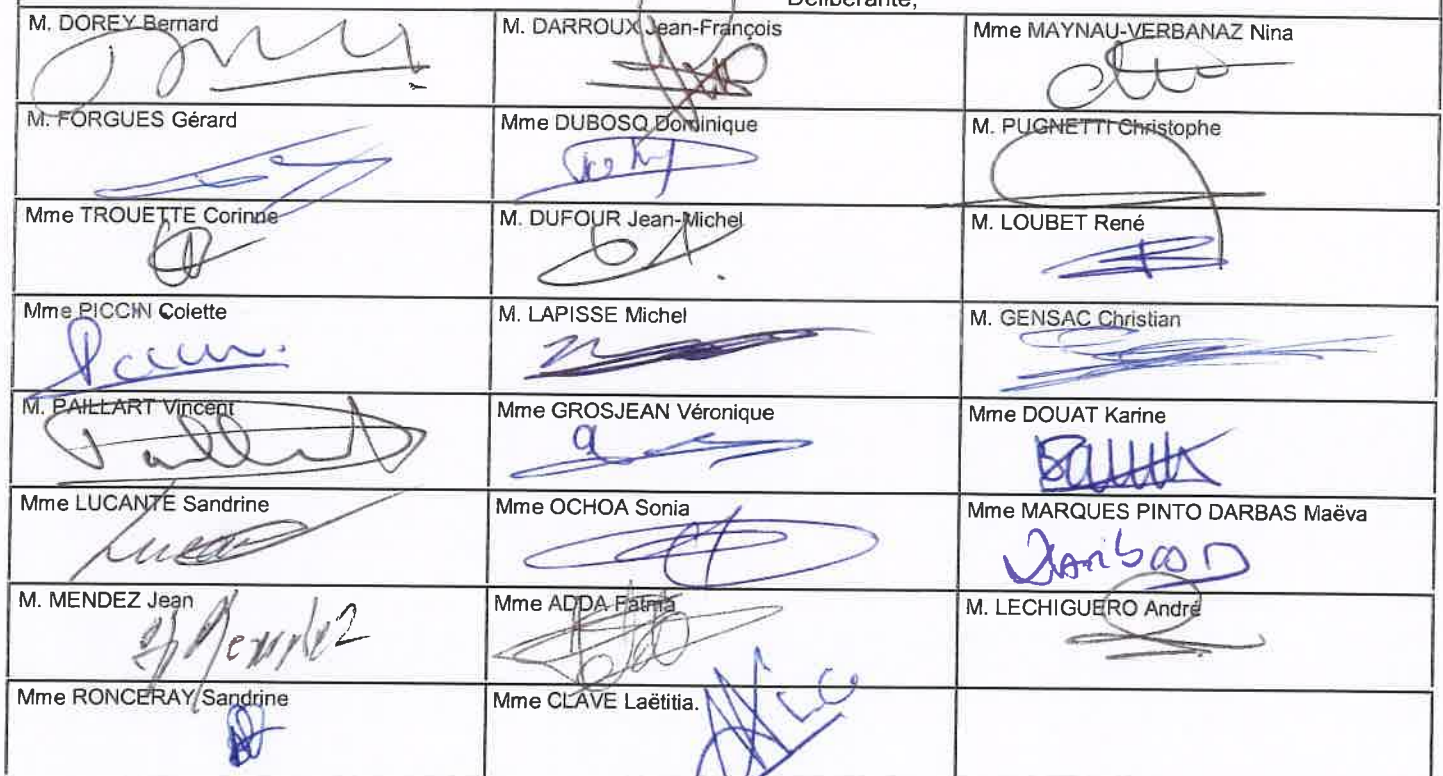 Délibérante,
M. DOREY Bernard
M. DARROUX Jean-François
Mme MAYNAU-VERBANAZ Nina
M. FORGUES Gérard
Mme DUBOSQ Dominique
M. PUGNETTI Christophe
Mme TROUETTE Corinne
M. DUFOUR Jean-Michel
M. LOUBET René
Mme PICCIN Colette
M. LAPISSE Michel
M. GENSAC Christian
M. PAILLART Vincent
Mme GROSJEAN Véronique
Mme DOUAT Karine
Mme LUCANTE Sandrine
Mme OCHOA Sonia
Mme MARQUES PINTO DARBAS Maëva
M. MENDEZ Jean
Mme ADDA Fatma
M. LECHIGUERO André
Mme RONCERAY Sandrine
Mme CLAVE Laëtitia.